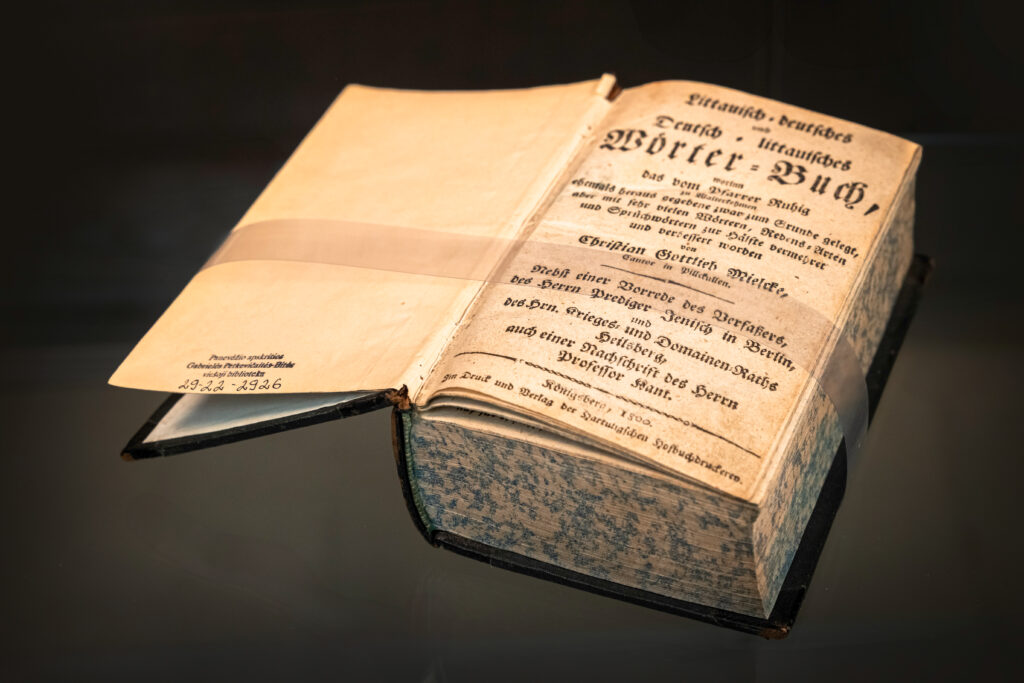 Panevėžio apskrities
Gabrielės Petkevičaitės-Bitės
viešoji biblioteka
29-22-2926
Littauisch-deutsches
und
Deutsch-littauisches
Wörter-Buch,
worinn
das vom Pfarrer Ruhig
zu Walterkehmen
ehemals heraus gegebene zwar zum Grunde gelegt,
aber mit sehr vielen Wörtern, Redens-Arten
und Sprüchwörtern zur Hälfte vermehret
und verbessert worden
von
Christian Gottlieb Mielcke,
Cantor in Pillckallen.
Nebst einer Vorrede des Verfassers,
des Herrn Prediger Jenisch in Berlin,
und
des Hrn. Krieges- und Domainen-Raths
Heilsberg,
auch einer Nachschrift des Herrn
Professor Kant.
Königsberg, 1800.
Im Druck und Verlag der Hartungschen Hofbuchdruckerey.